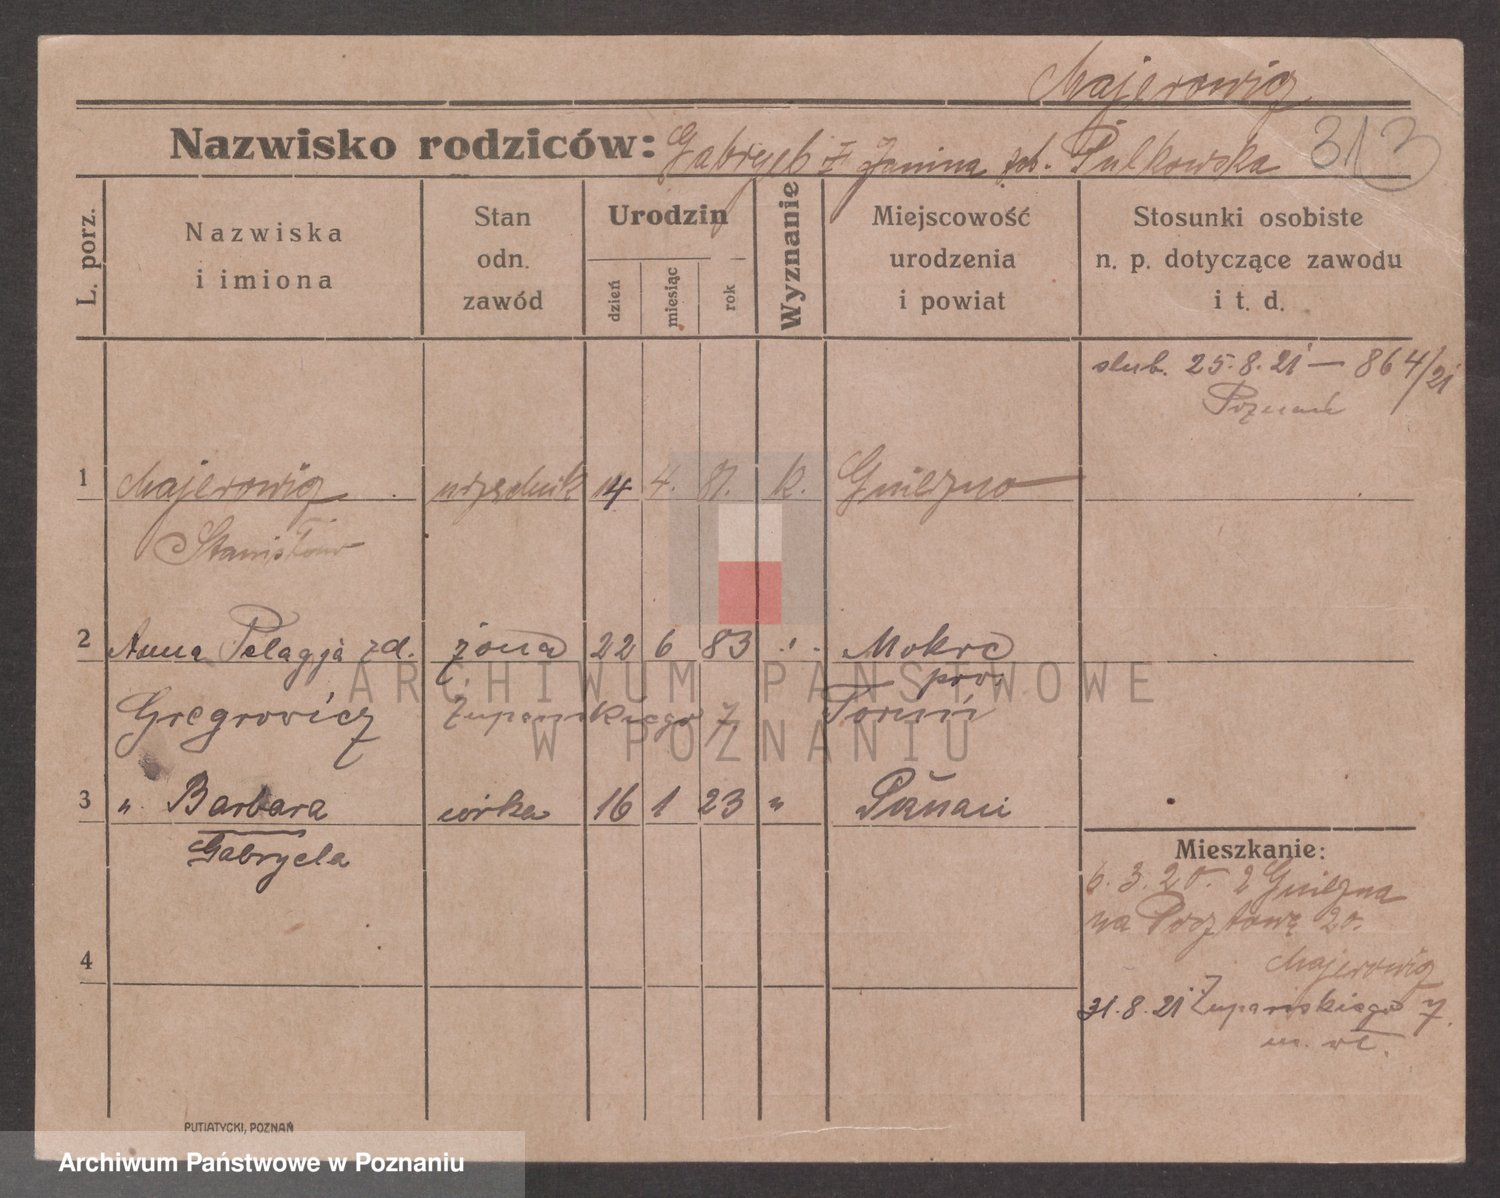 Majerowicz
Nazwisko rodziców: Gabryel i Janina zd. Pulkowska 313
L. porz.
Nazwiska
i imiona
Stan
odn.
zawód
Urodzin
dzień
miesiąc
rok
Wyznanie
Miejscowość
urodzenia
i powiat
Stosunki osobiste
n. p. dotyczące zawodu
i t. d.
slub. 25.8.21 — 864/21
Poznań
1 Majerowicz urzędnik 14 4. 81. k. Gniezno
Stanisław
2 Anna Pelagja zd. żona 22 6 83 Mokre
pow.
Gregrovicz Żupańskiego 7 Toruń
3 " Barbara córka 16 1 23 "
Gabryela
4
Mieszkanie:
6.3.20. z Gniezna
na Pocztową 20.
Majerowicz
31.8.21 Żupańskiego 7.
PUTIATYCKI, POZNAŃ
ARCHIWUM PAŃSTWOWE
W POZNANIU
Archiwum Państwowe w Poznaniu